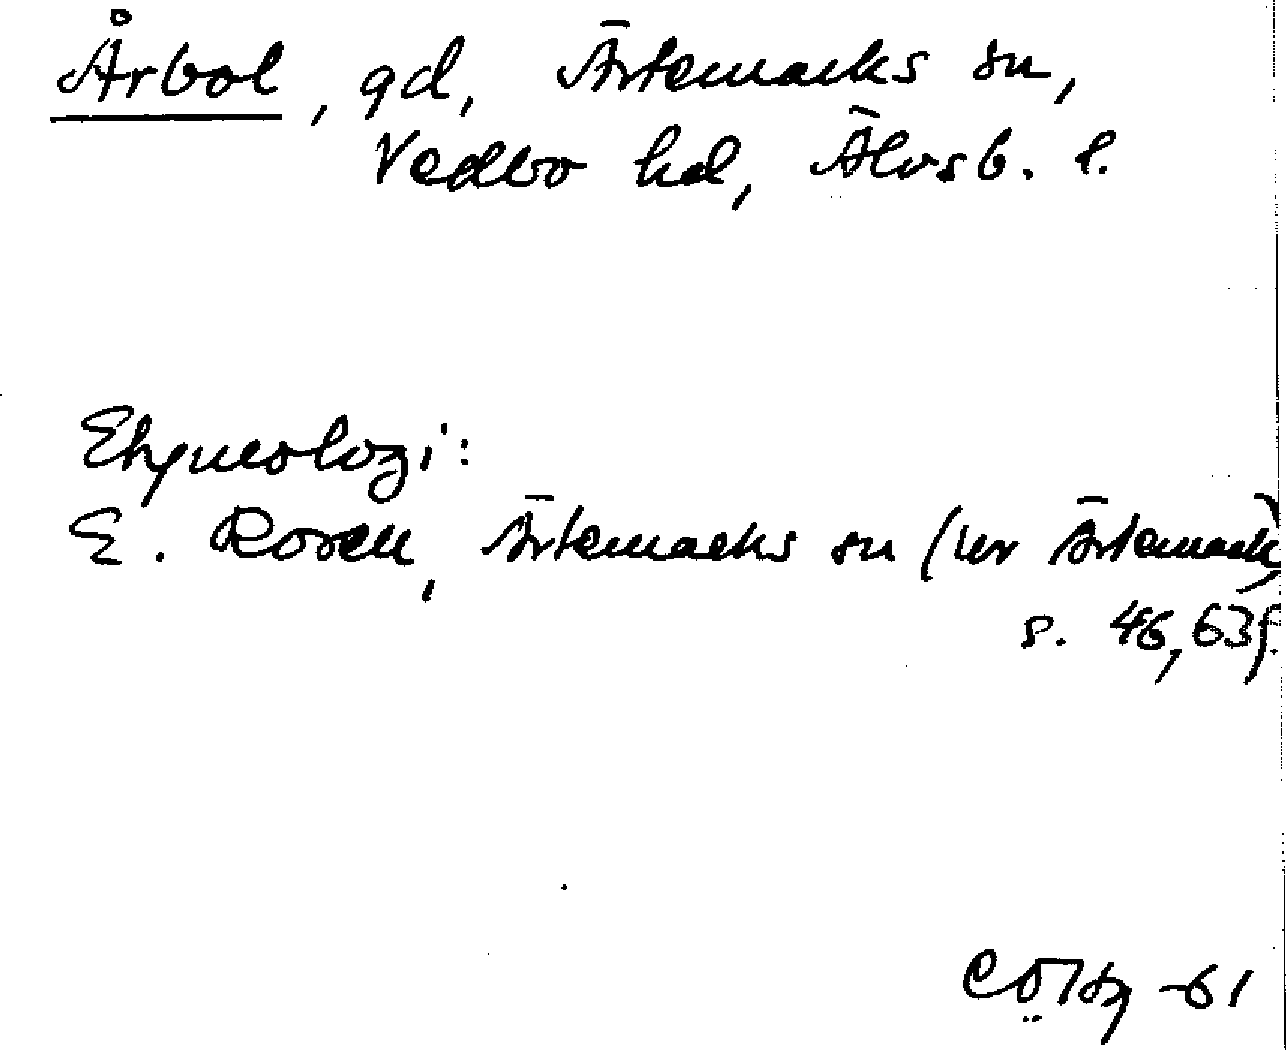 Årbol, gd, Ärtemarks sn,
Vedbo hd, Älvsb. l.
Etymologi:
E. Rosell, Ärtemarks sn (ur Ärtemark)
s. 46, 63f.
-61